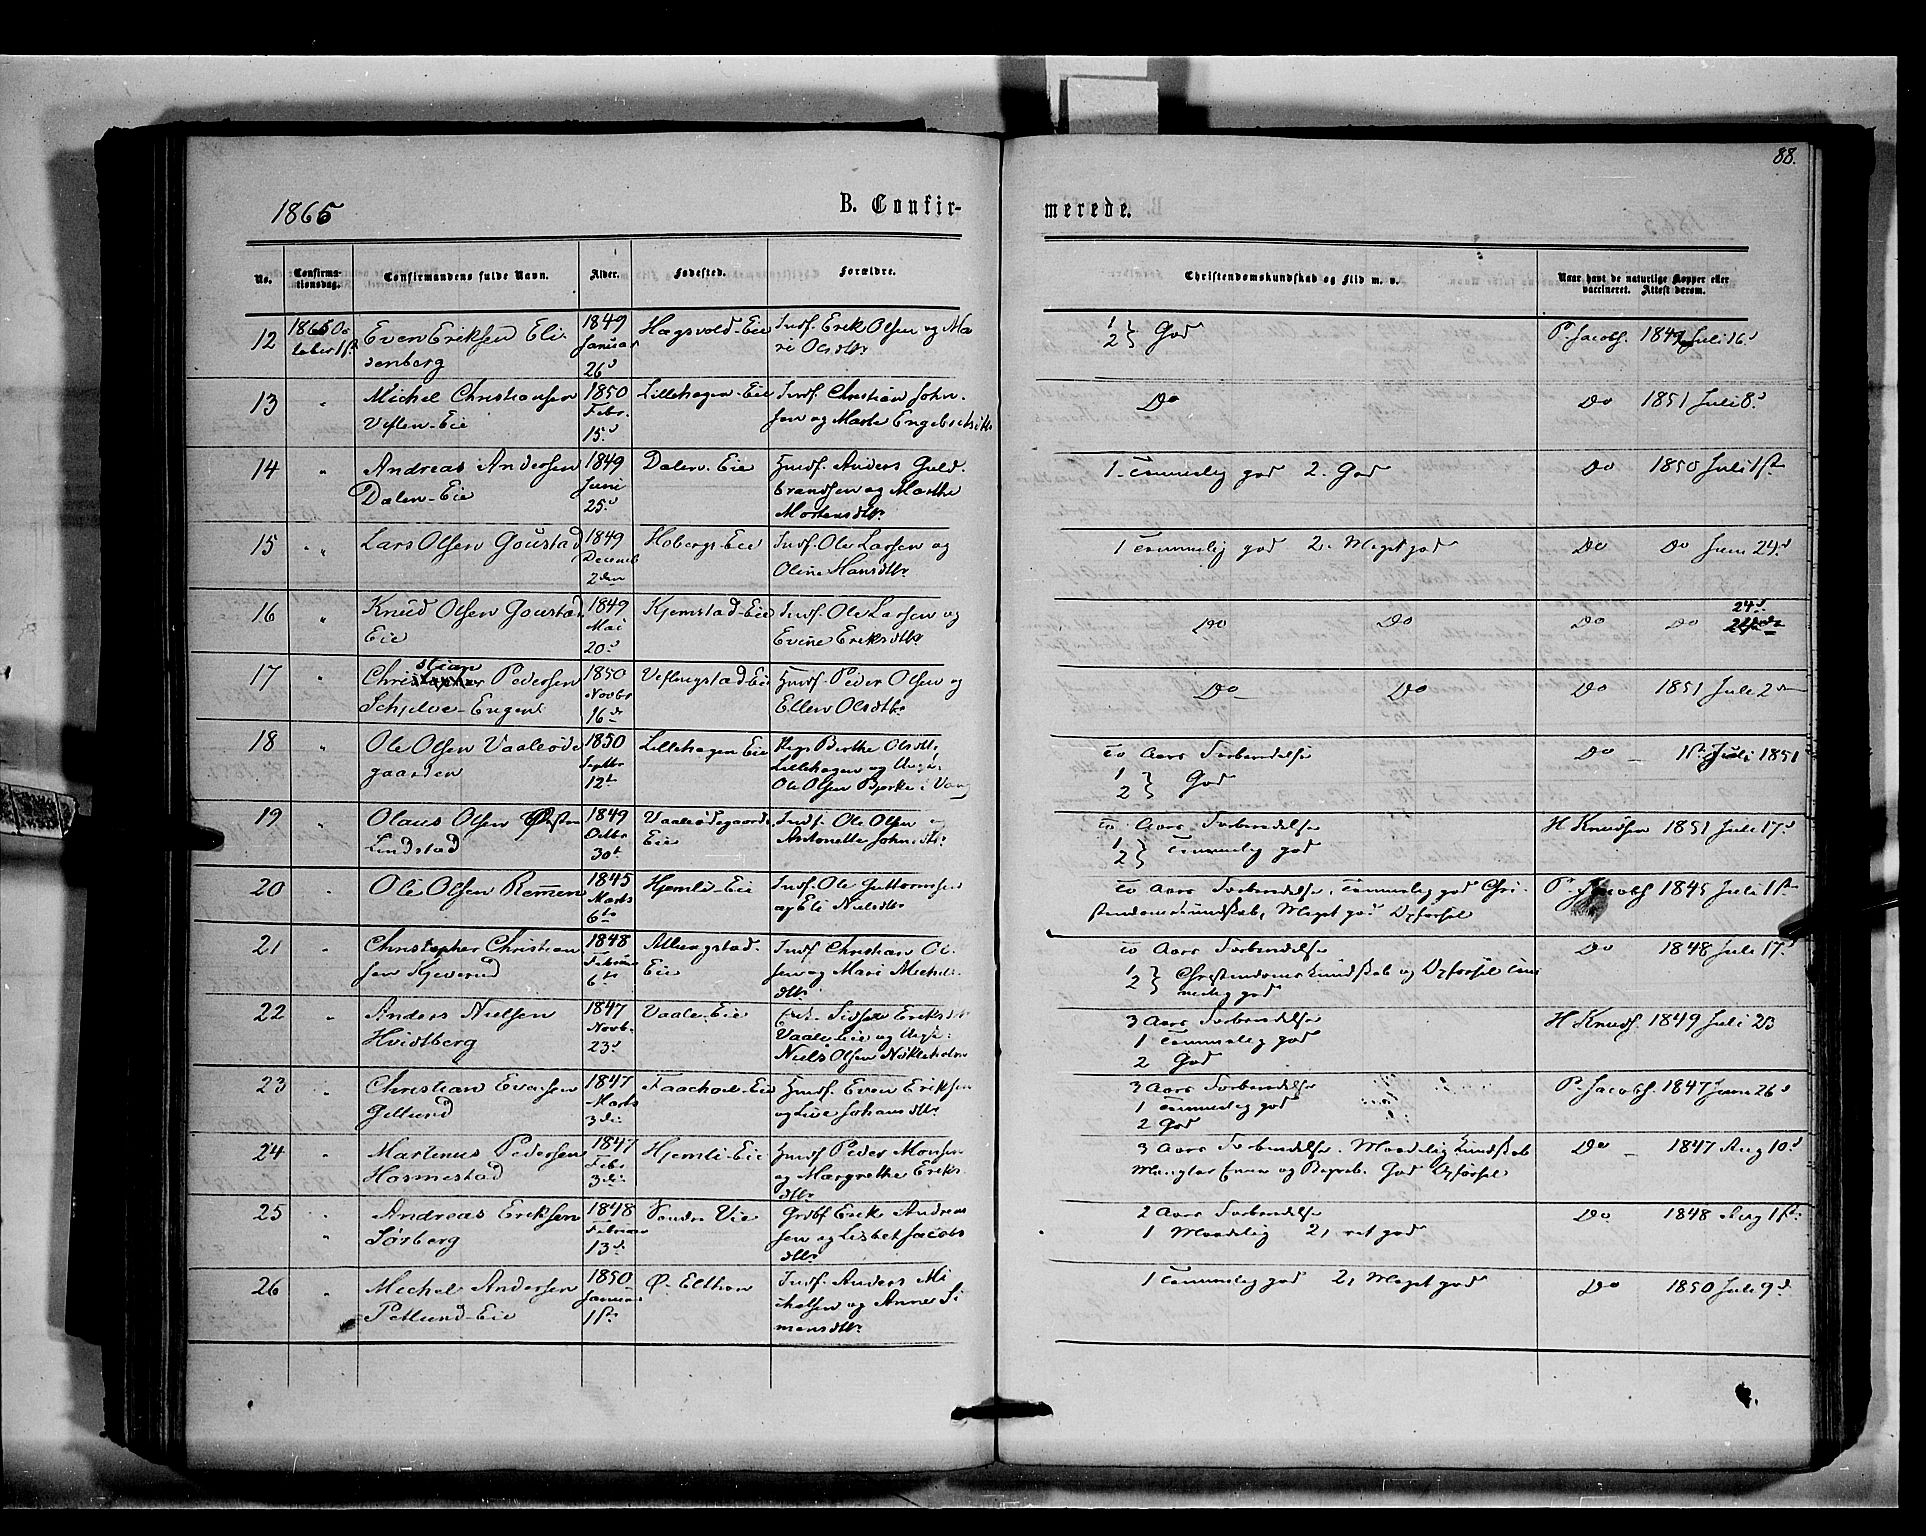 88.
1865
B. Confir-
merede.
No.
Confirma-
tionsdag.
Confirmandens fulde Navn.
Alder.
Fødested.
Forældre.
Christendomskundskab og Flid m. v.
Naar havt de naturlige Kopper eller
vaccineret. Attest derom.
12 1865 Oc
tober 1st
Even Eriksen Eli
denberg
1849
Januar
26d
Hagsvold-Eie
Indf. Erik Olsen og Ma
ri Olsdtr
1
2 } God
P. Jacobs. 1849 Juli 16d
13 "
Michel Christiansen
Veflen-Eie
1850
Febr.
15d
Lillehagen-Eie
Indf. Christian John
sen og Marte Engebretsdtr
Do
Do 1851 Juli 8d
14 "
Andreas Andersen
Dalen-Eie
1849
Juni
25d
Dalen-Eie
Huusf. Anders Guld
brandsen og Marthe
Mortensdtr
1. Temmelig god 2. God
Do 1850 Juli 1st
15 "
Lars Olsen Goustad
1849
Decemb
2den
Hoberg-Eie
Indf. Ole Larsen og
Oline Hansdtr
1 Temmelig god 2. Meget god
Do Do Juni 24d
16 "
Knud Olsen Goustad
Eie
1849
Mai
20d
Kjemstad-Eie
Indf. Ole Larsen og
Evine Eriksdtr
Do Do
Do Do 24d
17 "
Christian Pedersen
Schjelve-Engen
1850
Novbr
16de
Veflingstad-Eie
Huusf. Peder Olsen og
Ellen Olsdtr
Do Do
Do 1851 Juli 2den
18 "
Ole Olsen Vaaleøde
gaarden
1850
Septbr
12te
Lillehagen Eie
Pige Berthe Olsdtr
Lillehagen og Ungk.
Ole Olsen Bjerke i Vang
to Aars Forberedelse
1
2 } God
Do - 1st Juli 1851
19 "
Olaus Olsen Østre
Lindstad
1849
Octbr
30te
Vaaleødegaards
Eie
Indf. Ole Olsen og
Antonette Johnsdtr
to Aars Forberedelse
1
2 } Temmelig god
H Knudsen 1851 Juli 17d
20 "
Ole Olsen Remen
1845
Marts
6te
Hjemli-Eie
Indf. Ole Guttormsen
og Eli Nielsdtr
to Aars Forberedelse, Temmelig god Chri-
stendomskundskab, Meget god Opførsel
P. Jacobs 1845 Juli 1st
21 "
Christopher Christian
sen Kjeverud
1848
Februar
6te
Allungstad-
Eie
Indf Christian Ol
sen og Mari Michels
dtr
to Aars Forberedelse
1
2 } Christendomskundskab og Opførsel tem
melig god
Do 1848 Juli 17d
22 "
Anders Nielsen
Hvidtberg
1847
Novb.
23d
Vaale-Eie
Vaaleeie og Ungk.
Niels Olsen Nokleholm
3 Aars Forberedelse
1 Temmelig god
2 God
H Knuds. 1849 Juli 23
23 "
Christian Evensen
Gillund
1847
Marts
3die
Taachol-Eie
Huusf. Even Eriksen
og Live Johansdtr
3 Aars Forberedelse
1 Temmelig god
2 God
P. Jacobs. 1847 Juni 26d
24 "
Martinus Pedersen
Hormestad
1847
Febr.
3die
Hjemli-Eie
Huusf Peder Monsen
og Margrethe Eriks
dtr
3 Aars Forberedelse. Maadelig Kundskab
God Opførsel
Do - 1847 Aug 10d
25 "
Andreas Eriksen
Sörberg
1848
Februar
13de
Grdbf Erik Andreas
sen og Lisbet Jacobs
dtr
2 Aars Forberedelse
1 Maadelig 2, ret god
Do 1848 Aug 1ste
26 "
Michel Andersen
Petlund-Eie
1850
Januar
1ste
Ø. Elthon
Indf. Anders Mi
chelsen og Anne Si
mensdtr
1 Temmelig god 2, Meget god
Do 1850 Juli 9d